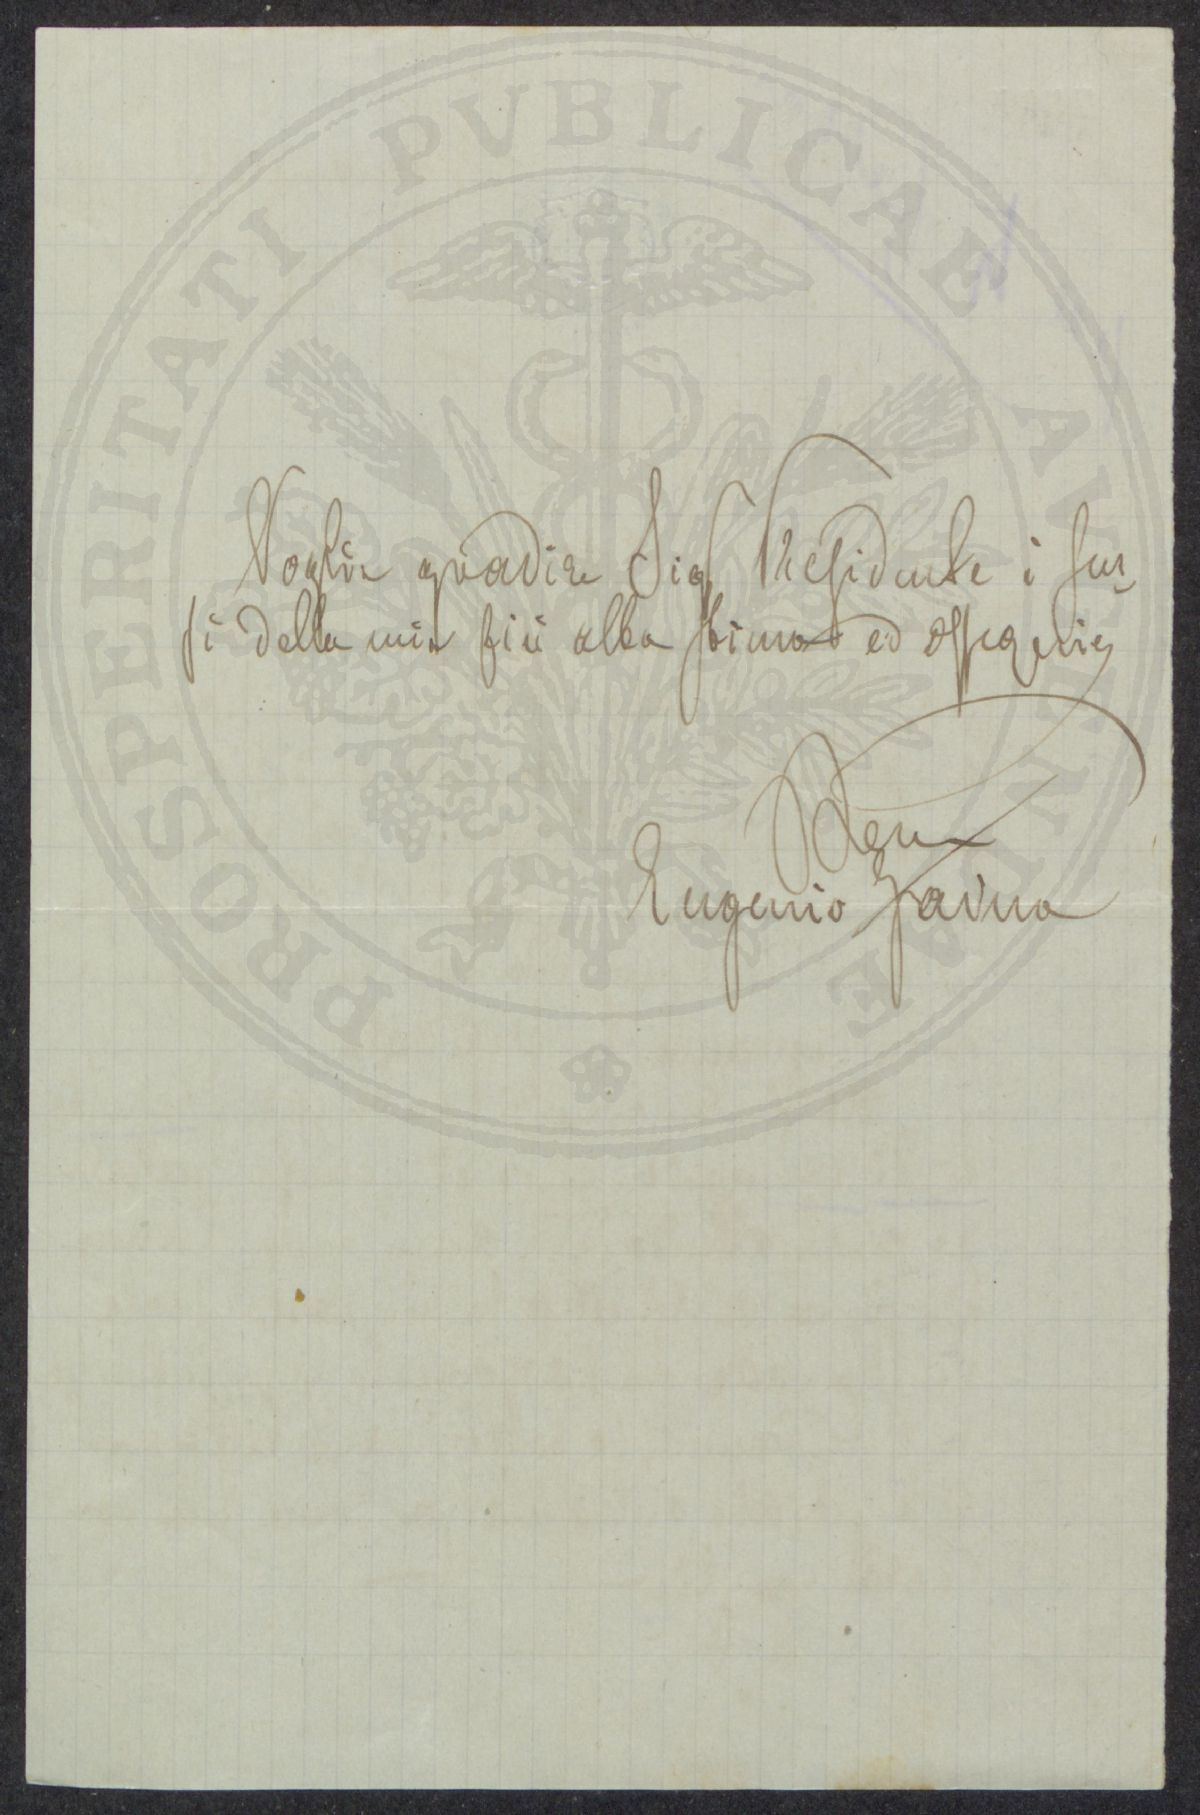 PROSPERITATI PVBLICAE AVGENDAE
Voglia gradire Sig. Presidente i sen-
si della mia più alta stima ed ossequio
Dev.
Eugenio Faina